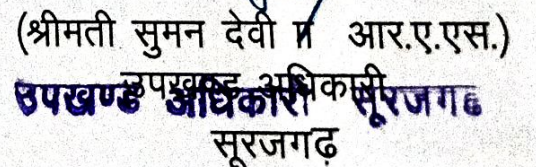 (श्रीमती सुमन देवी आर.ए.एस.)
उपखण्ड अधिकारी
उपखण्ड अधिकारी सूरजगढ
सूरजगढ़